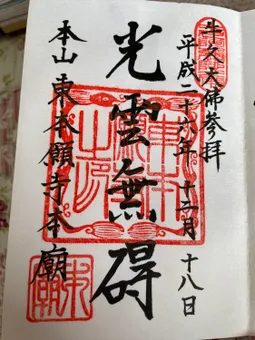 牛久大佛参拝
平成二十八年十二月十八日
光雲無碍
本山東本願寺本廟